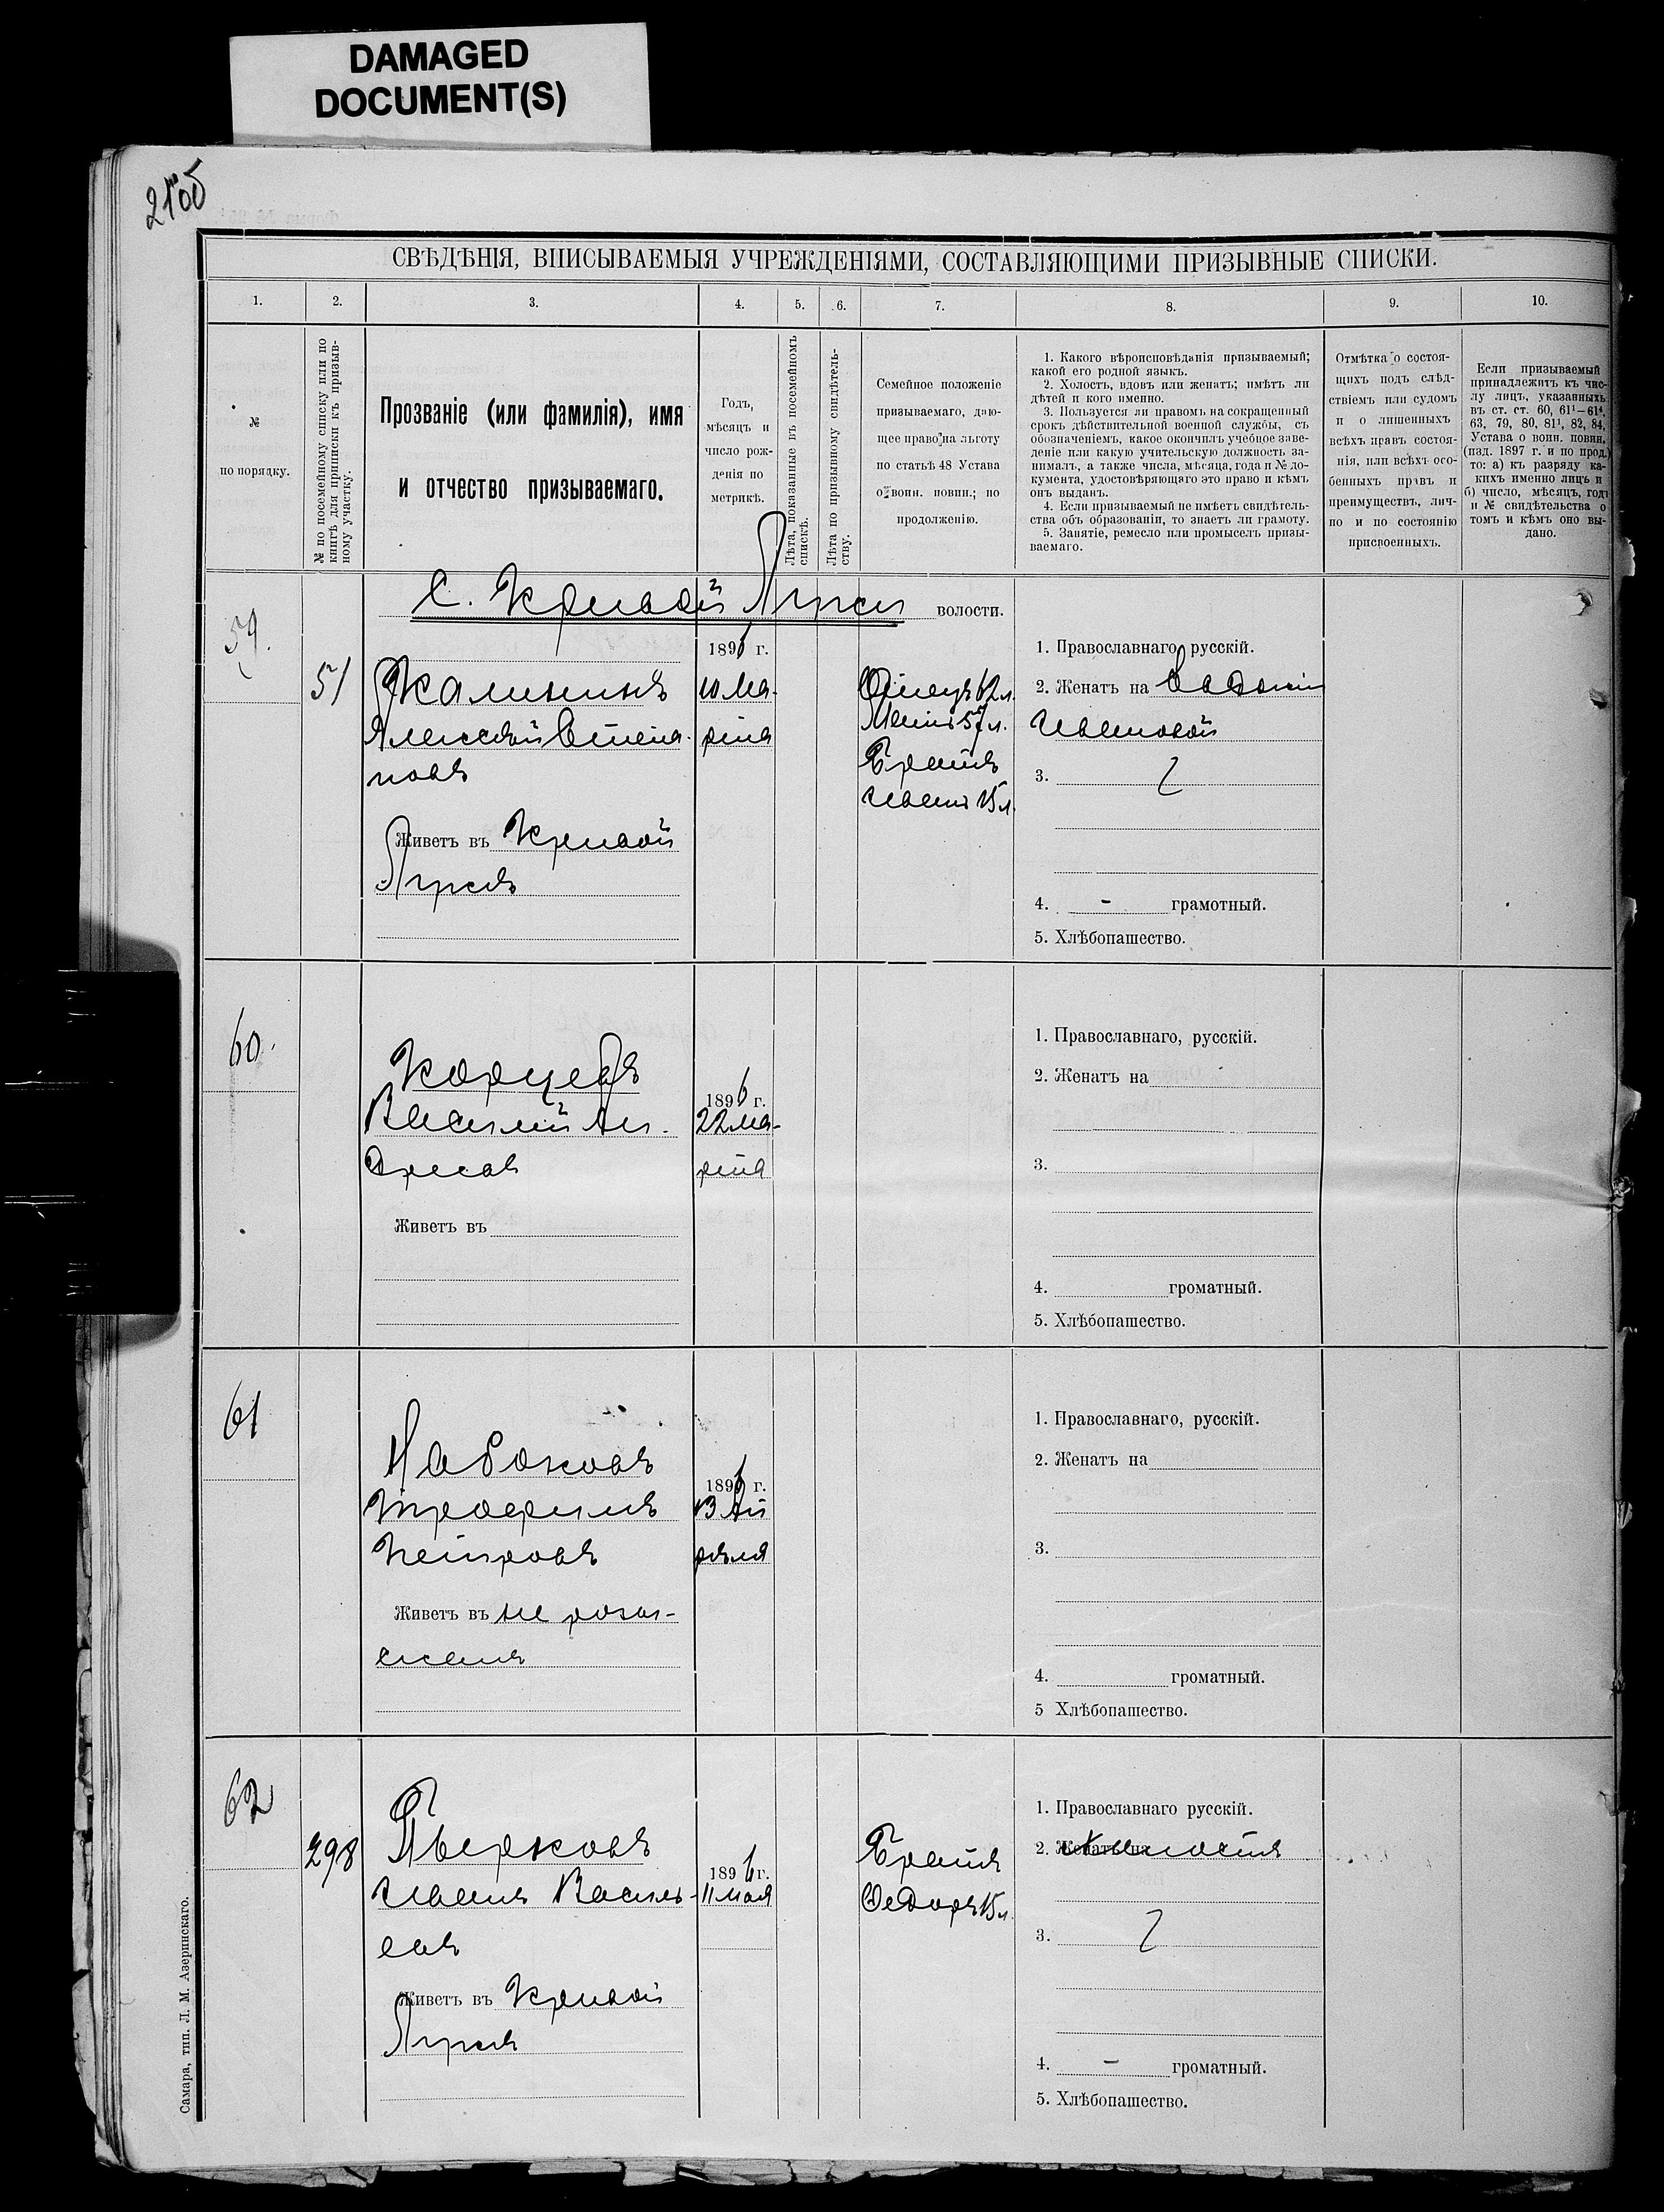 DAMAGED
DOCUMENT(S)
21об
СВѢДѢНІЯ, ВПИСЫВАЕМЫЯ УЧРЕЖДЕНІЯМИ, СОСТАВЛЯЮЩИМИ ПРИЗЫВНЫЕ СПИСКИ.
1. 2. 3. 4. 5. 6. 7. 8. 9. 10.
№
по порядку.
№ по посемейному списку или по
книгѣ для приписки къ призыв-
ному участку.
Прозваніе (или фамилія), имя
и отчество призываемаго.
Годъ,
мѣсяцъ и
число рож-
денія по
метрикѣ.
Лѣта, показанные въ посемейномъ
спискѣ.
Лѣта по призывному свидѣтель-
ству.
Семейное положеніе
призываемаго, даю-
щее право на льготу
по статьѣ 48 Устава
о воин. повин.; по
продолженію.
1. Какого вѣроисповѣданія призываемый;
какой его родной языкъ.
2. Холостъ, вдовъ или женатъ; имѣтъ ли
дѣтей и кого именно.
3. Пользуется ли правомъ на сокращенный
срокъ дѣйствительной военной службы, съ
обозначеніемъ, какое окончилъ учебное заве-
деніе или какую учительскую должность за-
нималъ, а также числа, мѣсяца, года и № до-
кумента, удостовѣряющяго это право и кѣмъ
онъ выданъ.
4. Если призываемый не имѣетъ свидѣтель-
ства объ образованіи, то знаетъ ли грамоту.
5. Занятіе, ремесло или промыселъ призы-
ваемаго.
Отмѣтка о состоя-
щихъ подъ слѣд-
ствіемъ или судомъ
и о лишенныхъ
всѣхъ правъ состоя-
нія, или всѣхъ осо-
бенныхъ правъ и
преимуществъ, лич-
но и по состоянію
присвоенныхъ.
Если призываемый
принадлежитъ къ чис-
лу лицъ, указанныхъ
въ ст. ст. 60, 61¹—61⁴,
63, 79, 80, 81¹, 82, 84,
Устава о воин. повин.
(изд. 1897 г. и по прод.)
то: а) къ разряду ка-
кихъ именно лицъ и
б) число, мѣсяцъ, годъ
и № свидѣтельства о
томъ и кѣмъ оно вы-
дано.
С. Кривой Луки волости.
59.
51
Калининъ
Алексѣй Степа-
новъ
Живетъ въ Кривой
Лукѣ
1896 г.
10 Ма-
рта
Отецъ 62 л.
Мать 57 л.
Братъ
Иванъ 15 л.
1. Православнаго русскій.
2. Женатъ на Евдокіи
Ивановой
3.
4. - грамотный.
5. Хлѣбопашество.
60.
Корцевъ
Василий Ан-
дреевъ
Живетъ въ
1896 г.
22 Ма-
рта
1. Православнаго, русскій.
2. Женатъ на
3.
4. громатный.
5. Хлѣбопашество.
61
Набоковъ
Трофимъ
Петровъ
Живетъ въ не розы-
сканъ
1896 г.
13 Ап
рѣля
1. Православнаго, русскій.
2. Женатъ на
3.
4. громатный.
5 Хлѣбопашество.
62
298
Пьерковъ
Иванъ Василь-
евъ
Живетъ въ Кривой
Лукѣ
1896 г.
11 мая
Братъ
Федоръ 15 л.
1. Православнаго русскій.
2. Женатъ на холостъ
3.
4. - громатный.
5. Хлѣбопашество.
Самара, тип. Л. М. Азеринскаго.